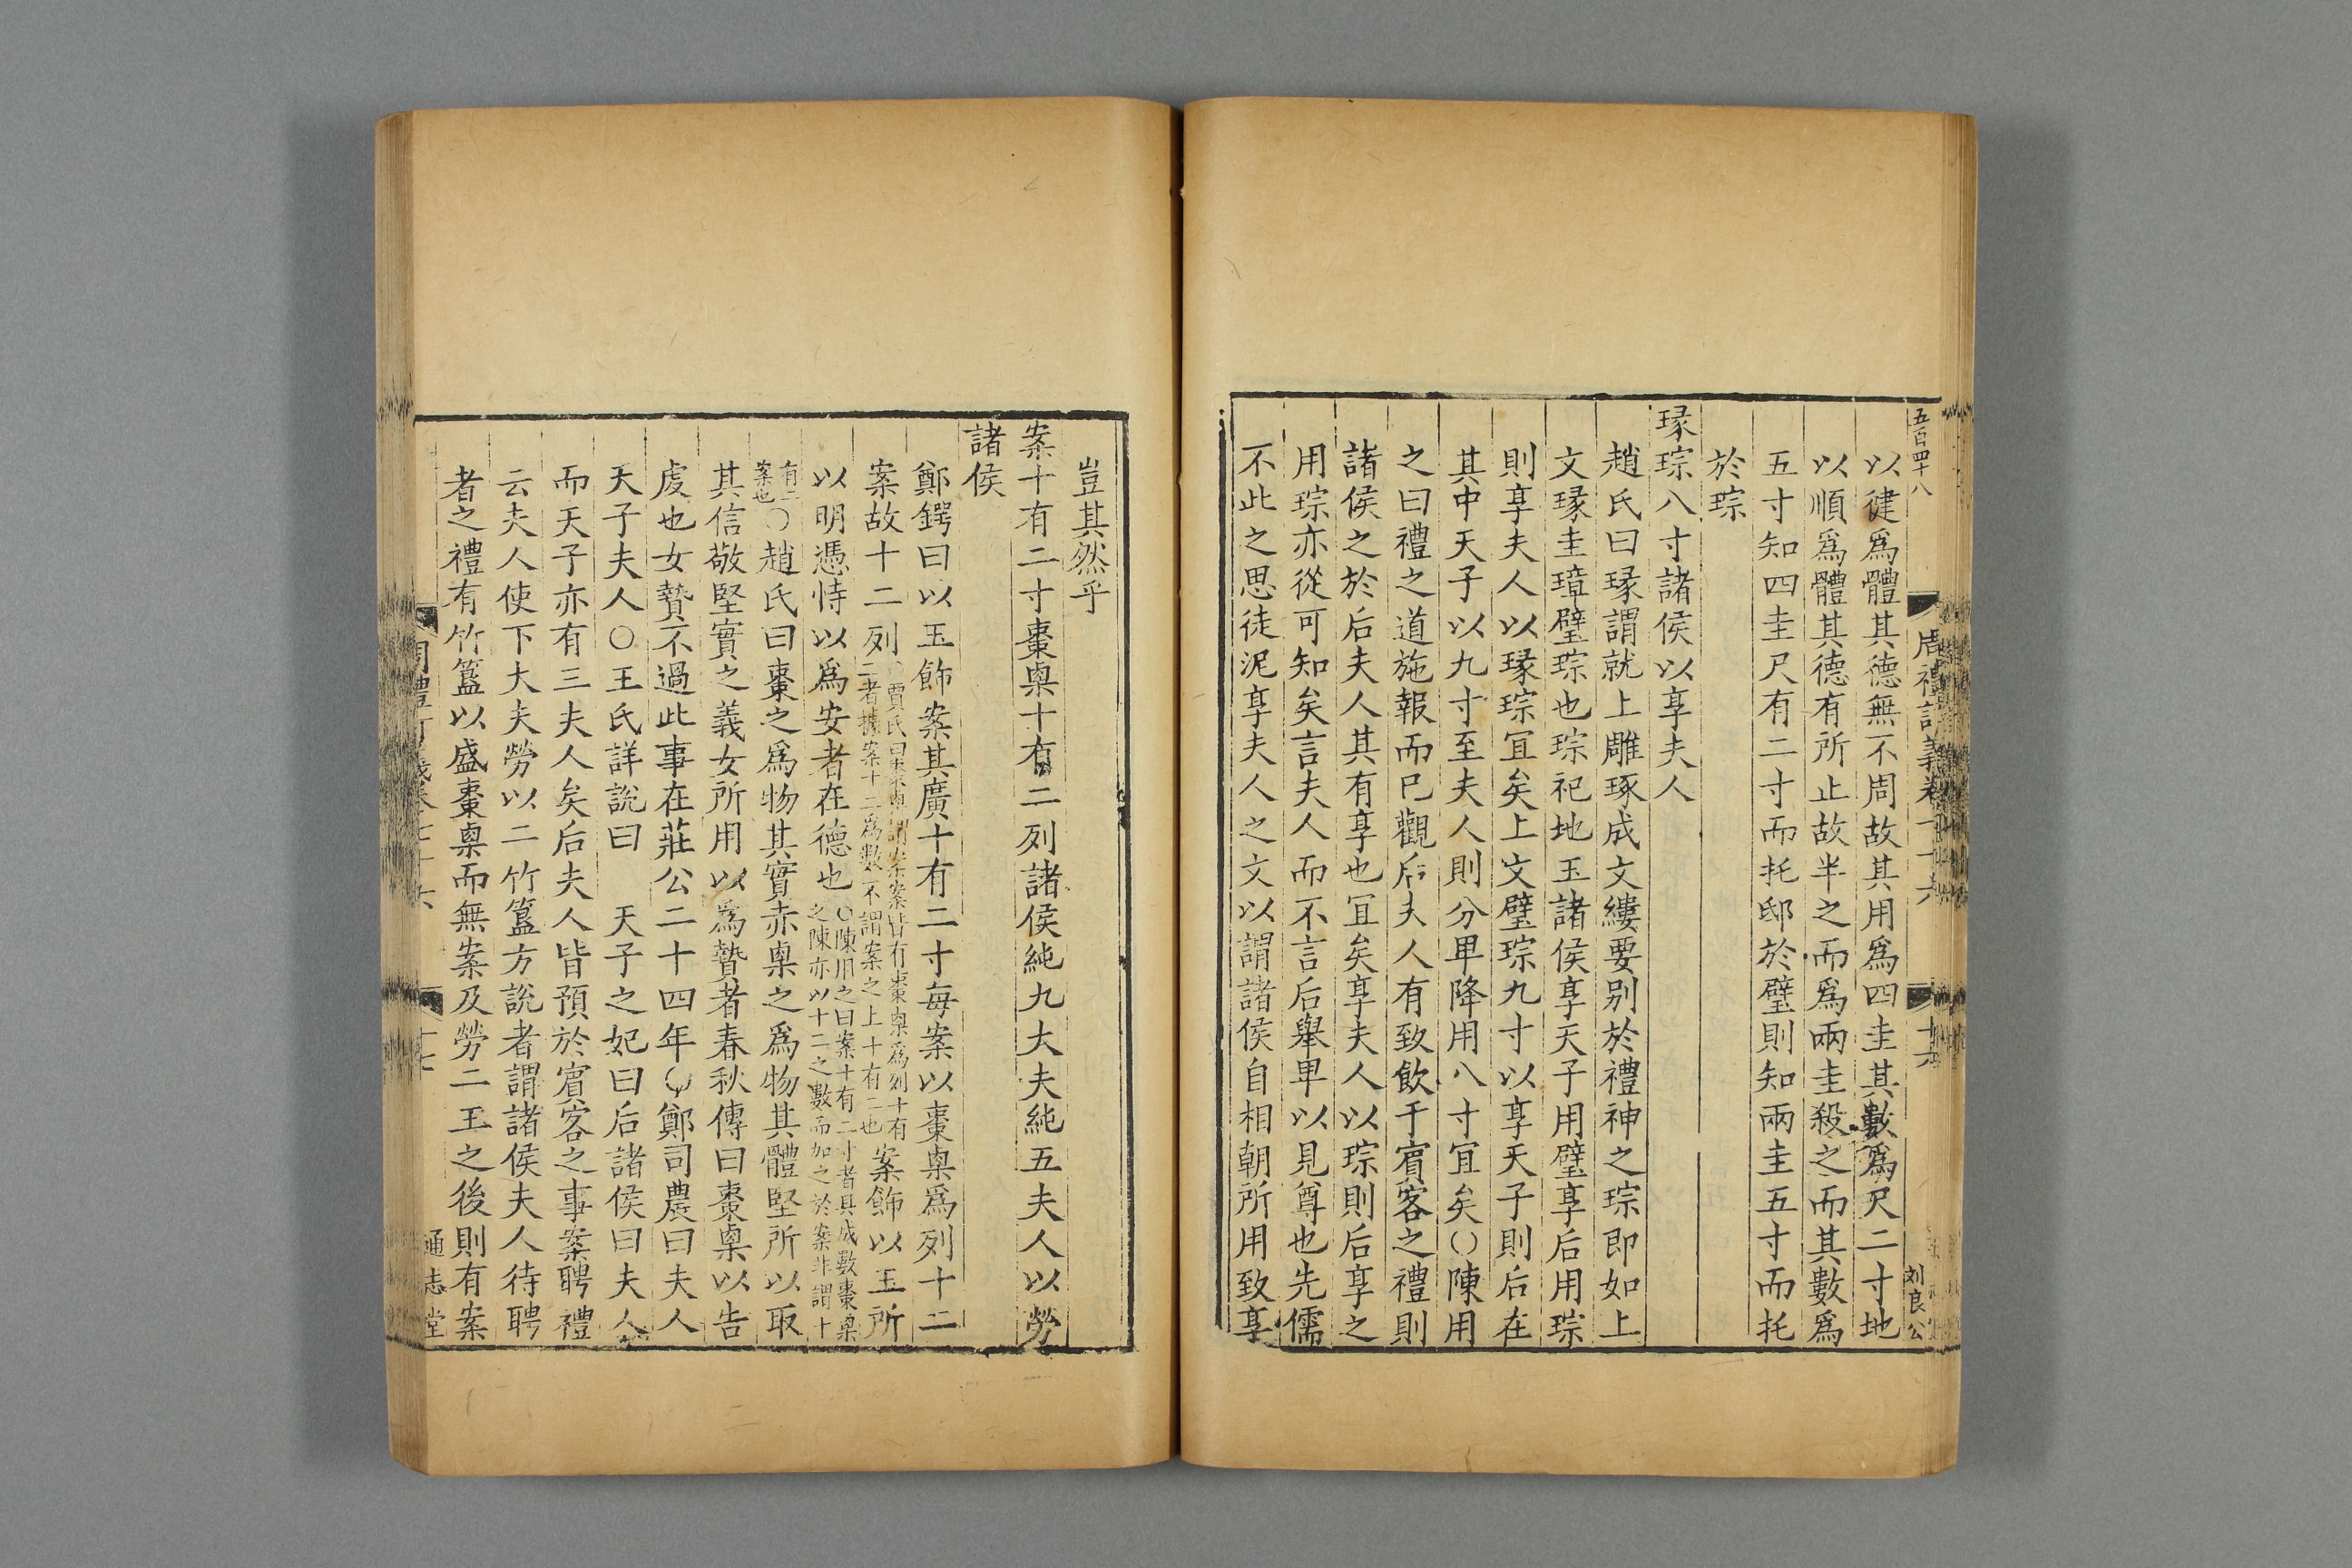 五百四十八
周禮訂義卷七十六
十六
刘良公
以健爲體其德無不周故其用爲四圭其數爲尺二寸地
以順爲體其德有所止故半之而爲兩圭殺之而其數爲
五寸知四圭尺有二寸而托邸於璧則知兩圭五寸而托
於琮
瑑琮八寸諸侯以享夫人
趙氏曰瑑謂就上雕琢成文縷要别於禮神之琮即如上
文瑑圭璋璧琮也琮祀地玉諸侯享天子用璧享后用琮
則享夫人以瑑琮冝矣上文璧琮九寸以享天子則后在
其中天子以九寸至夫人則分卑降用八寸冝矣○陳用
之曰禮之道施報而已觀后夫人有致飲于賔客之禮則
諸侯之於后夫人其有享也冝矣享夫人以琮則后享之
用琮亦從可知矣言夫人而不言后舉卑以見尊也先儒
不此之思徒泥享夫人之文以謂諸侯自相朝所用致享
豈其然乎
案十有二寸棗㮚十有二列諸侯純九大夫純五夫人以勞
諸侯
鄭鍔曰以玉飾案其廣十有二寸每案以棗㮚爲列十二
案故十二列○賈氏曰棗㮚謂案案皆有棗㮚爲列十有二者據案十二爲數不謂案之上十有二也案飾以玉所
以明憑恃以爲安者在德也○陳用之曰案十有二寸者具成數棗㮚之陳亦以十二之數而加之於案非謂十
有二案也○趙氏曰棗之爲物其實赤㮚之爲物其體堅所以取
其信敬堅實之義女所用以爲贄者春秋傳曰棗㮚以告
虔也女贄不過此事在莊公二十四年○鄭司農曰夫人
天子夫人○王氏詳說曰　天子之妃曰后諸侯曰夫人
而天子亦有三夫人矣后夫人皆預於賔客之事案聘禮
云夫人使下大夫勞以二竹簋方說者謂諸侯夫人待聘
者之禮有竹簋以盛棗㮚而無案及勞二王之後則有案
周禮訂義卷七十六
十七
通志堂